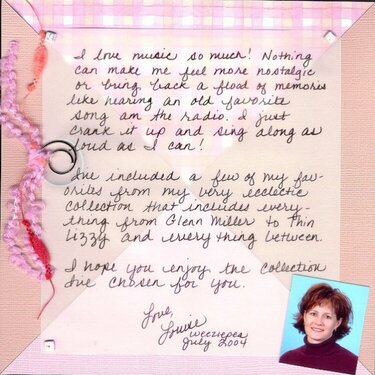 I love music so much! Nothing
can make me feel more nostalgic
or bring back a flood of memories
like hearing an old favorite
song am the radio. I just
crank it up and sing along as
loud as I can!
I've included a few of my fav-
orites from my very eclectic
collection that includes every-
thing from Glenn Miller to Thin
Lizzy and everything between.
I hope you enjoy the collection
I've chosen for you.
Love,
Louise
weeziepea
July 2004